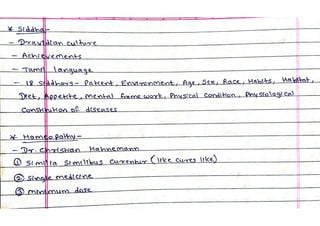 * Siddha-
- Dravidian culture
- Achievements
- Tamil language
- 18 Siddhars- Patient, Environment, Age, Sex, Race, Habits, Habitat,
Diet, Appetite, mental frame work, Physical Condition, Physiological
Constitution of diseases
* Homeopathy-
- Dr. Christian Hahnemann
① Simila Similibus Curentur (like cures like)
② Single medicine
③ minimum dose